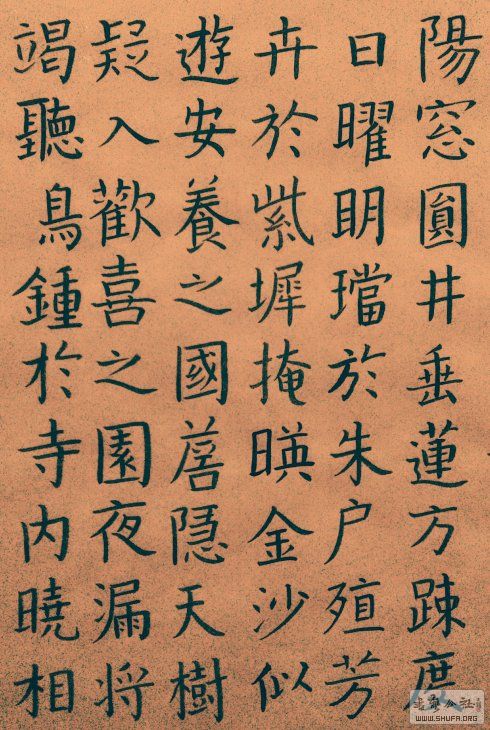 陽窓圓井垂蓮方踈度
日曜明璫於朱户殖芳
卉於紫墀掩暎金沙似
遊安養之國隱天樹
疑入歡喜之園夜漏将
竭聽鳥鍾於寺内曉相
書藝公社
WWW.SHUFA.ORG